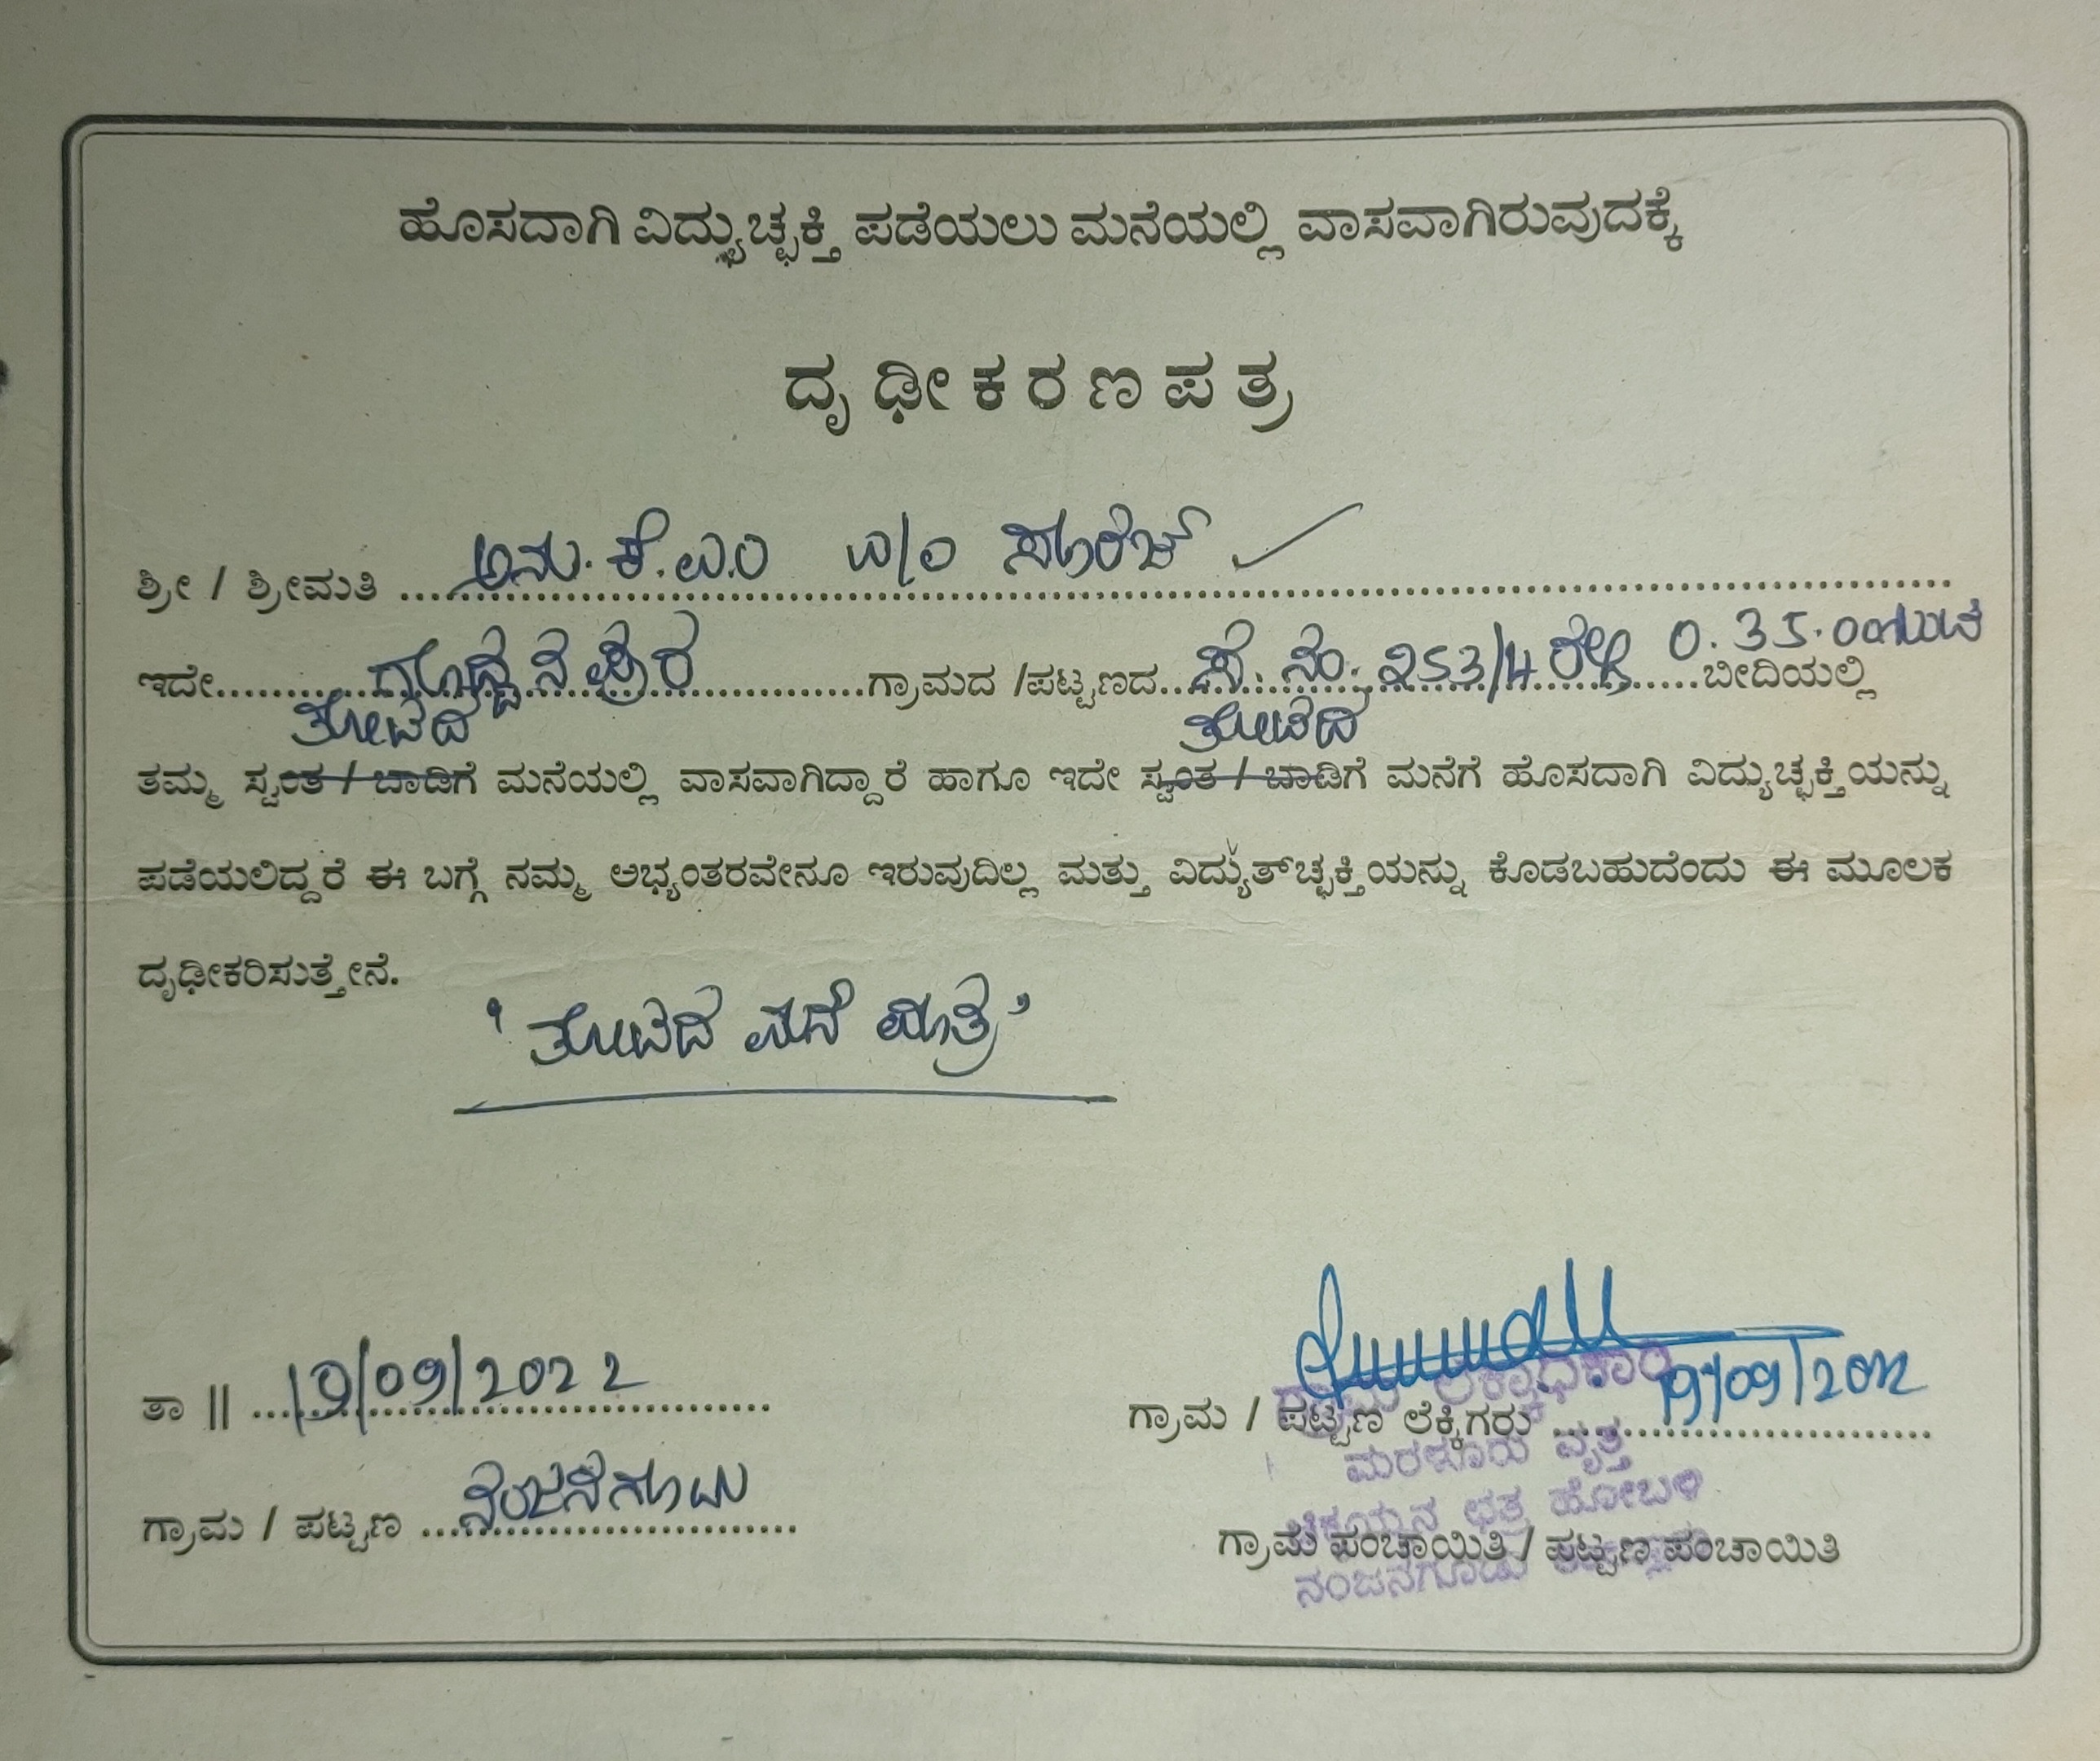 ಹೊಸದಾಗಿ ವಿದ್ಯುಚ್ಛಕ್ತಿ ಪಡೆಯಲು ಮನೆಯಲ್ಲಿ ವಾಸವಾಗಿರುವುದಕ್ಕೆ
ದೃಢೀಕರಣಪತ್ರ
ಶ್ರೀ / ಶ್ರೀಮತಿ ಅನು. ಕೆ.ಎಂ W/o ಸೂರಜ್
ಇದೇ ಗ್ರಾಮದ /ಪಟ್ಟಣದ ಸ.ನಂ. 253/4 ರಲ್ಲಿ 0.35.00 ಬೀದಿಯಲ್ಲಿ
ತೋಟದ ತೋಟದ
ತಮ್ಮ ಸ್ವಂತ / ಬಾಡಿಗೆ ಮನೆಯಲ್ಲಿ ವಾಸವಾಗಿದ್ದಾರೆ ಹಾಗೂ ಇದೇ ಸ್ವಂತ / ಬಾಡಿಗೆ ಮನೆಗೆ ಹೊಸದಾಗಿ ವಿದ್ಯುಚ್ಛಕ್ತಿಯನ್ನು
ಪಡೆಯಲಿದ್ದರೆ ಈ ಬಗ್ಗೆ ನಮ್ಮ ಅಭ್ಯಂತರವೇನೂ ಇರುವುದಿಲ್ಲ ಮತ್ತು ವಿದ್ಯುತ್‌ಚ್ಛಕ್ತಿಯನ್ನು ಕೊಡಬಹುದೆಂದು ಈ ಮೂಲಕ
ದೃಢೀಕರಿಸುತ್ತೇನೆ.
' ತೋಟದ ಮನೆ ಮಾತ್ರ '
ತಾ || 19/09/2022
ಗ್ರಾಮ / ಪಟ್ಟಣ ಲೆಕ್ಕಿಗರು 19/09/2022
ಗ್ರಾಮ ಲೆಕ್ಕಾಧಿಕಾರಿ
ಮರಳೂರು ವೃತ್ತ
ಛತ್ರ ಹೋಬಳಿ
ನಂಜನಗೂಡು
ಗ್ರಾಮ / ಪಟ್ಟಣ ನಂಜನಗೂಡು
ಗ್ರಾಮ ಪಂಚಾಯಿತಿ / ಪಟ್ಟಣ ಪಂಚಾಯಿತಿ